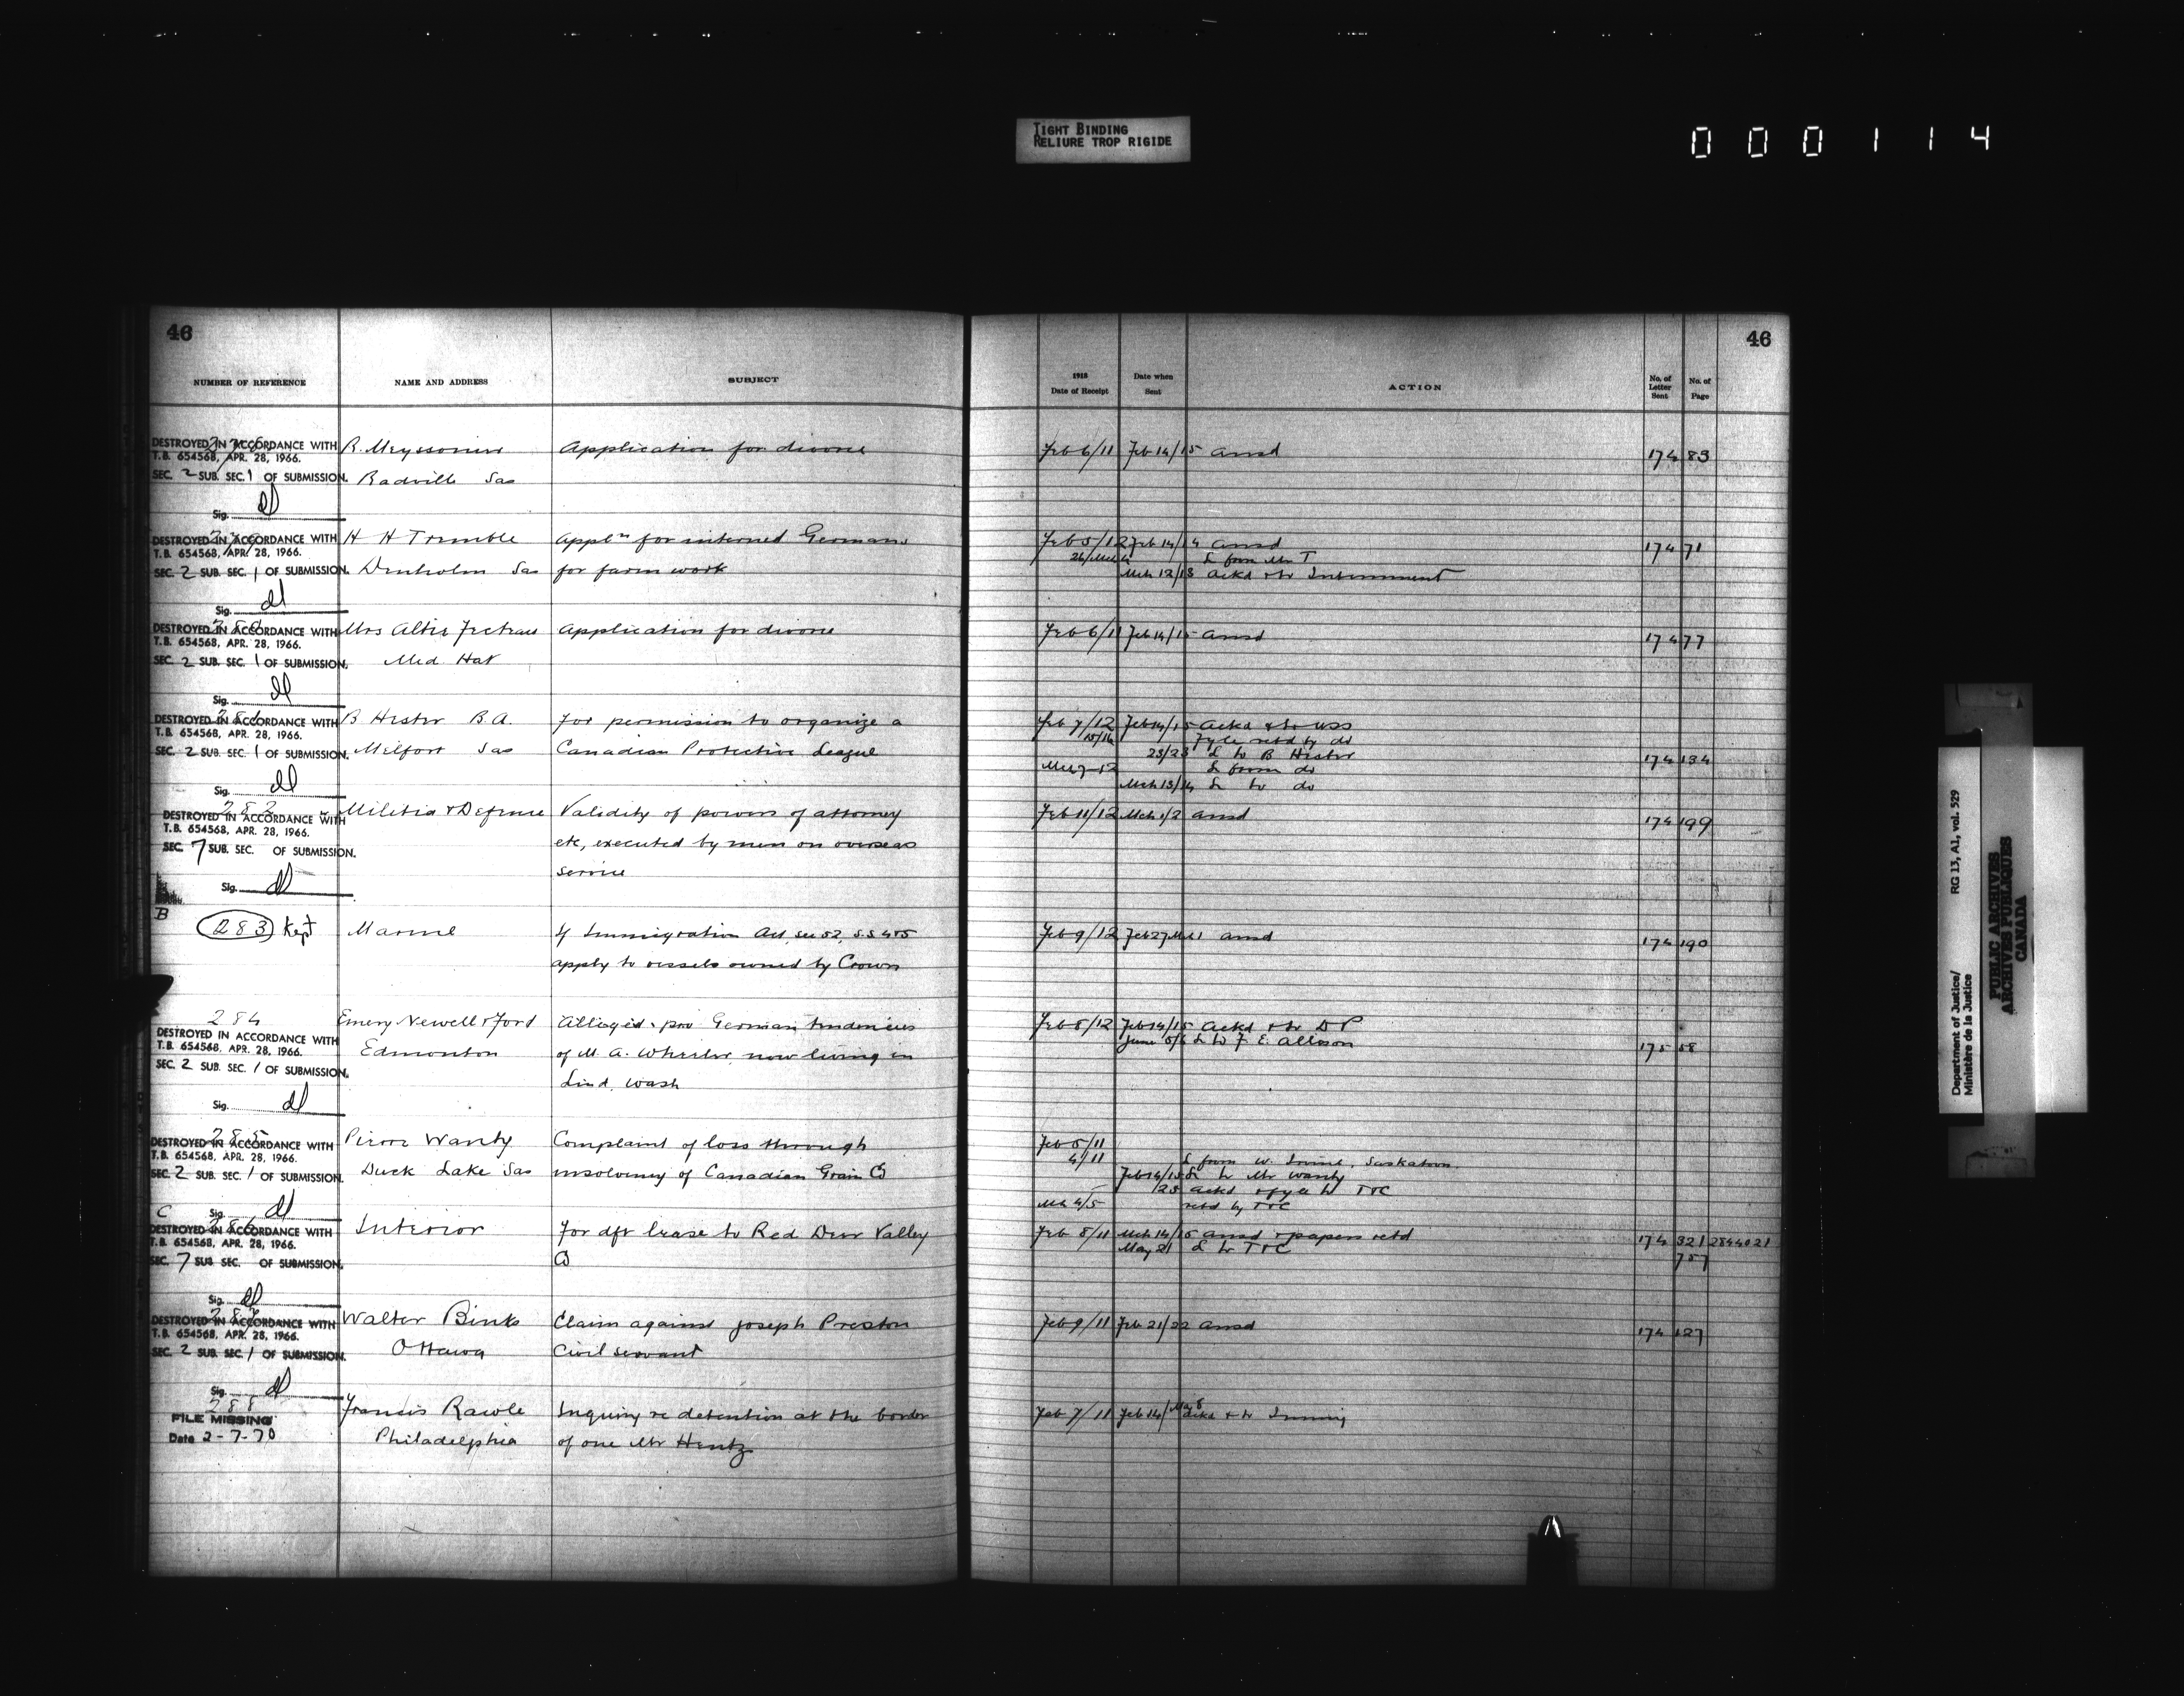 TIGHT BINDING
RELIURE TROP RIGIDE
000114
46
NUMBER OF REFERENCE NAME AND ADDRESS SUBJECT
1918 Date of Receipt Date when Sent ACTION No. of Letter Sent No. of Page
46
DESTROYED IN ACCORDANCE WITH R. Meyssonier Application for divorce Feb 6/11 Feb 14/15 ansd 174 83
T.B. 654568, APR. 28, 1966.
SEC. 2 SUB. SEC. 1 OF SUBMISSION. Radville Sas
Sig.
DESTROYED IN ACCORDANCE WITH H H Trimble Appln for interned Germans Feb 5/12 Feb 14/14 ansd 174 71
T.B. 654568, APR. 28, 1966. L from Mr T
SEC. 2 SUB. SEC. 1 OF SUBMISSION. Denholm Sas for farm work Mch 12/13 ackd & to Internment
Sig.
DESTROYED IN ACCORDANCE WITH Mrs Application for divorce Feb 6/11 Feb 14/15 ansd 174 77
T.B. 654568, APR. 28, 1966.
SEC. 2 SUB. SEC. 1 OF SUBMISSION. Med. Hat
Sig.
281
DESTROYED IN ACCORDANCE WITH B Hester B.A. For permission to organize a Feb 7/12 Feb 14/15 ackd & to
T.B. 654568, APR. 28, 1966. 15/16 Fyle retd by do
SEC. 2 SUB. SEC. 1 OF SUBMISSION. Melfort Sas Canadian Protective League 23/23 L to B Hester 174 134
L from do
Sig. Mch 13/14 L to do
282
DESTROYED IN ACCORDANCE WITH Militia & Defence Validity of powers of attorney Feb 11/12 Mch 1/2 ansd 174 199
T.B. 654568, APR. 28, 1966.
SEC. 7 SUB. SEC. OF SUBMISSION. etc, executed by men on overseas
service
Sig.
B
283 Kept Marine If Immigration Act, sec 52, s.s 4 & 5 Feb 9/12 Feb 27/Mch 1 ansd 174 190
apply to vessels owned by Crown
284 Emery Newell & Ford Alleged pro German tendencies Feb 8/12 Feb 14/15 ackd & to D P
DESTROYED IN ACCORDANCE WITH
T.B. 654568, APR. 28, 1966. Edmonton of M. A. Wheeler now living in June 5/6 L to F. E. Allison 175 58
SEC. 2 SUB. SEC. 1 OF SUBMISSION. Lind, Wash
Sig.
285
DESTROYED IN ACCORDANCE WITH Pierre Wanty Complaint of loss through Feb 5/11
T.B. 654568, APR. 28, 1966. 4/11 L from W. Irvine, Saskatoon
SEC. 2 SUB. SEC. 1 OF SUBMISSION. Duck Lake Sas insolvency of Canadian Grain Co Feb 14/15 L to Mr Wanty
25 ackd & fyle to T & C
C Sig. Mch 4/5 retd by T & C
286
DESTROYED IN ACCORDANCE WITH Interior For dft lease to Red Deer Valley Feb 8/11 Mch 14/15 ansd & papers retd 174 321 2844021
T.B. 654568, APR. 28, 1966. May 21 L to T & C 757
SEC. 7 SUB SEC. OF SUBMISSION. Co
Sig.
287
DESTROYED IN ACCORDANCE WITH Walter Binks Claim against Joseph Preston Feb 9/11 Feb 21/22 ansd 174 127
T.B. 654568, APR. 28, 1966.
SEC. 2 SUB. SEC. 1 OF SUBMISSION. Ottawa Civil servant
Sig.
288
FILE MISSING Francis Rawle Inquiry re detention at the border Feb 7/11 Feb 14/ ackd & to Immig
Date 2-7-70 Philadelphia of one Mr Hentz
Department of Justice/ RG 13, A1, vol. 529
Ministère de la Justice
PUBLIC ARCHIVES
ARCHIVES PUBLIQUES
CANADA